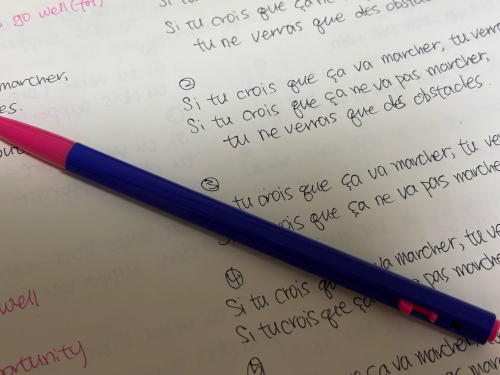 go well (for)
Si tu crois que ça ne
tu ne verras que des obstac
marcher,
es.
②
Si tu crois que ça va marcher, tu verra
Si tu crois que ça ne va pas marcher,
tu ne verras que des obstacles.
③
tu crois que ça va marcher, tu ve
crois que ça ne va pas marche
④
Si tu crois que va marcher, tu
Si tu crois que ça pas march
well
portunity
ça va marcher